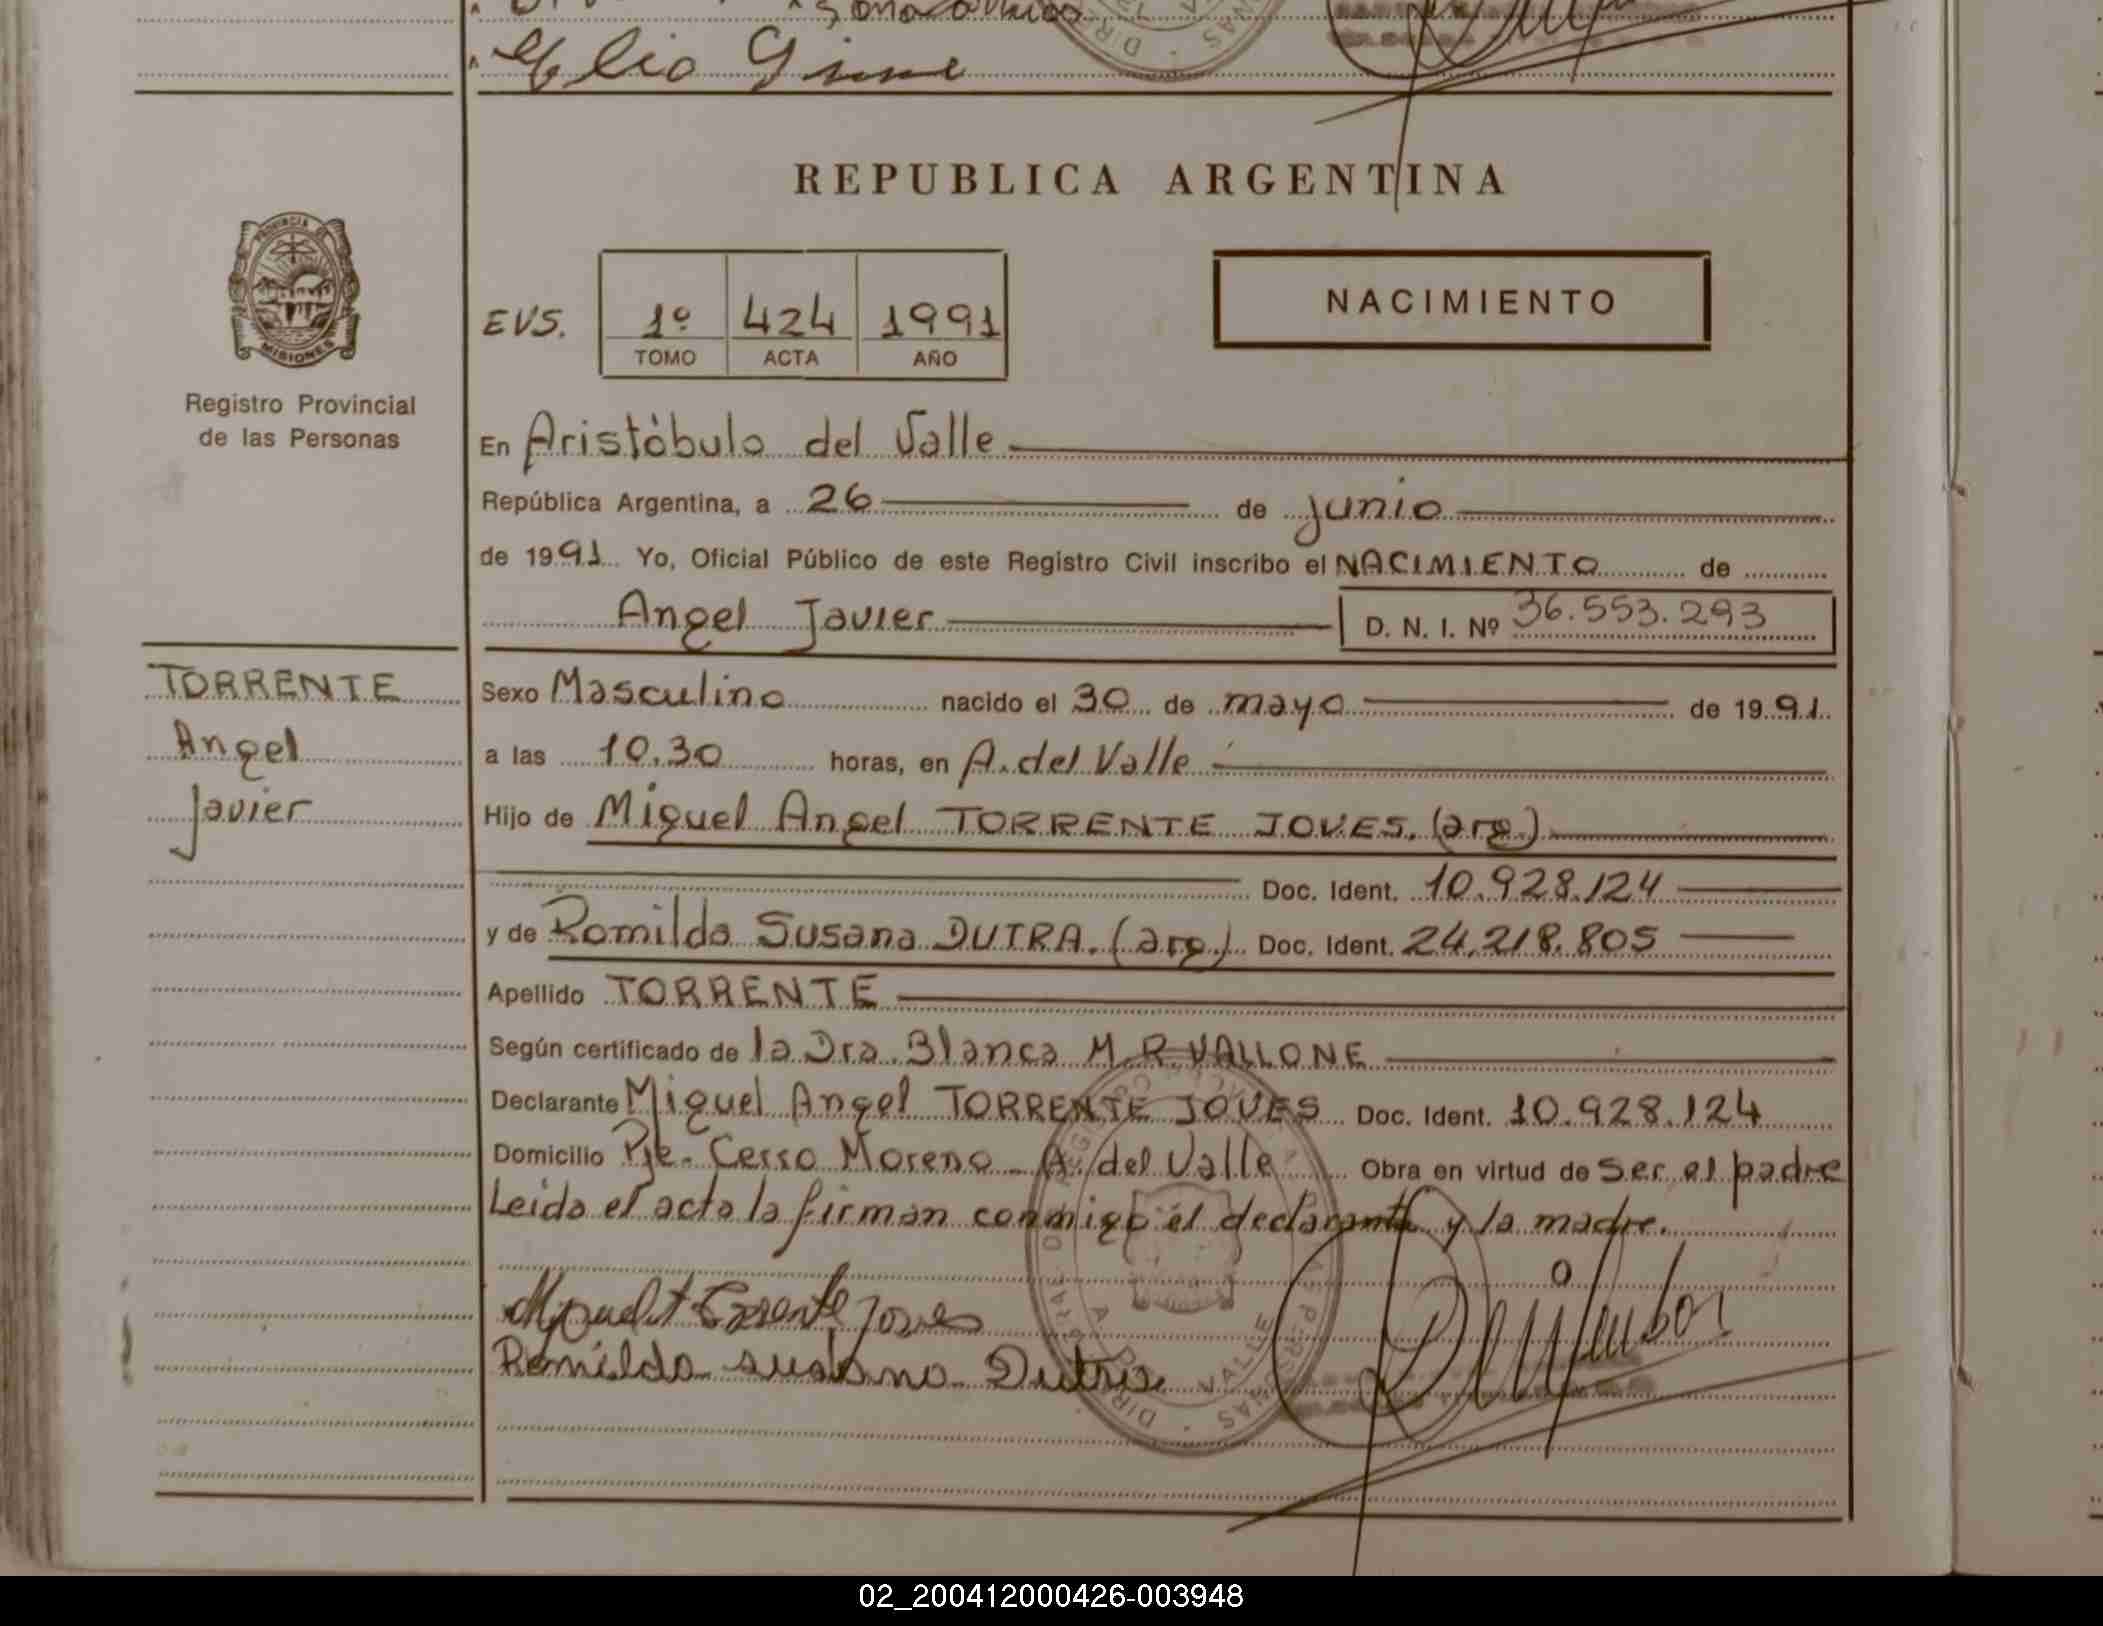 Elio
REPUBLICA ARGENTINA
PROVINCIA DE
MISIONES
Registro Provincial
de las Personas
EVS. 1º 424 1991
TOMO ACTA AÑO
NACIMIENTO
En Aristóbulo del Valle
República Argentina, a 26 de junio
de 1991 Yo, Oficial Público de este Registro Civil inscribo el NACIMIENTO de
Angel Javier D. N. I. Nº 36.553.293
TORRENTE
Angel
Javier
Sexo Masculino nacido el 30 de mayo de 1991
a las 10.30 horas, en A. del Valle
Hijo de Miguel Angel TORRENTE JOVES. (arg.)
Doc. Ident. 10.928.124
y de Romilda Susana DUTRA. (arg.) Doc. Ident. 24.218.805
Apellido TORRENTE
Según certificado de la Dra. Blanca M.R. VALLONE
Declarante Miguel Angel TORRENTE JOVES Doc. Ident. 10.928.124
Domicilio Pje. Cerro Moreno - A. del Valle Obra en virtud de ser el padre
Leida el acta la firman conmigo el declarante y la madre.
Miguel A Torrente Joves
Romilda susana Dutra
02_200412000426-003948